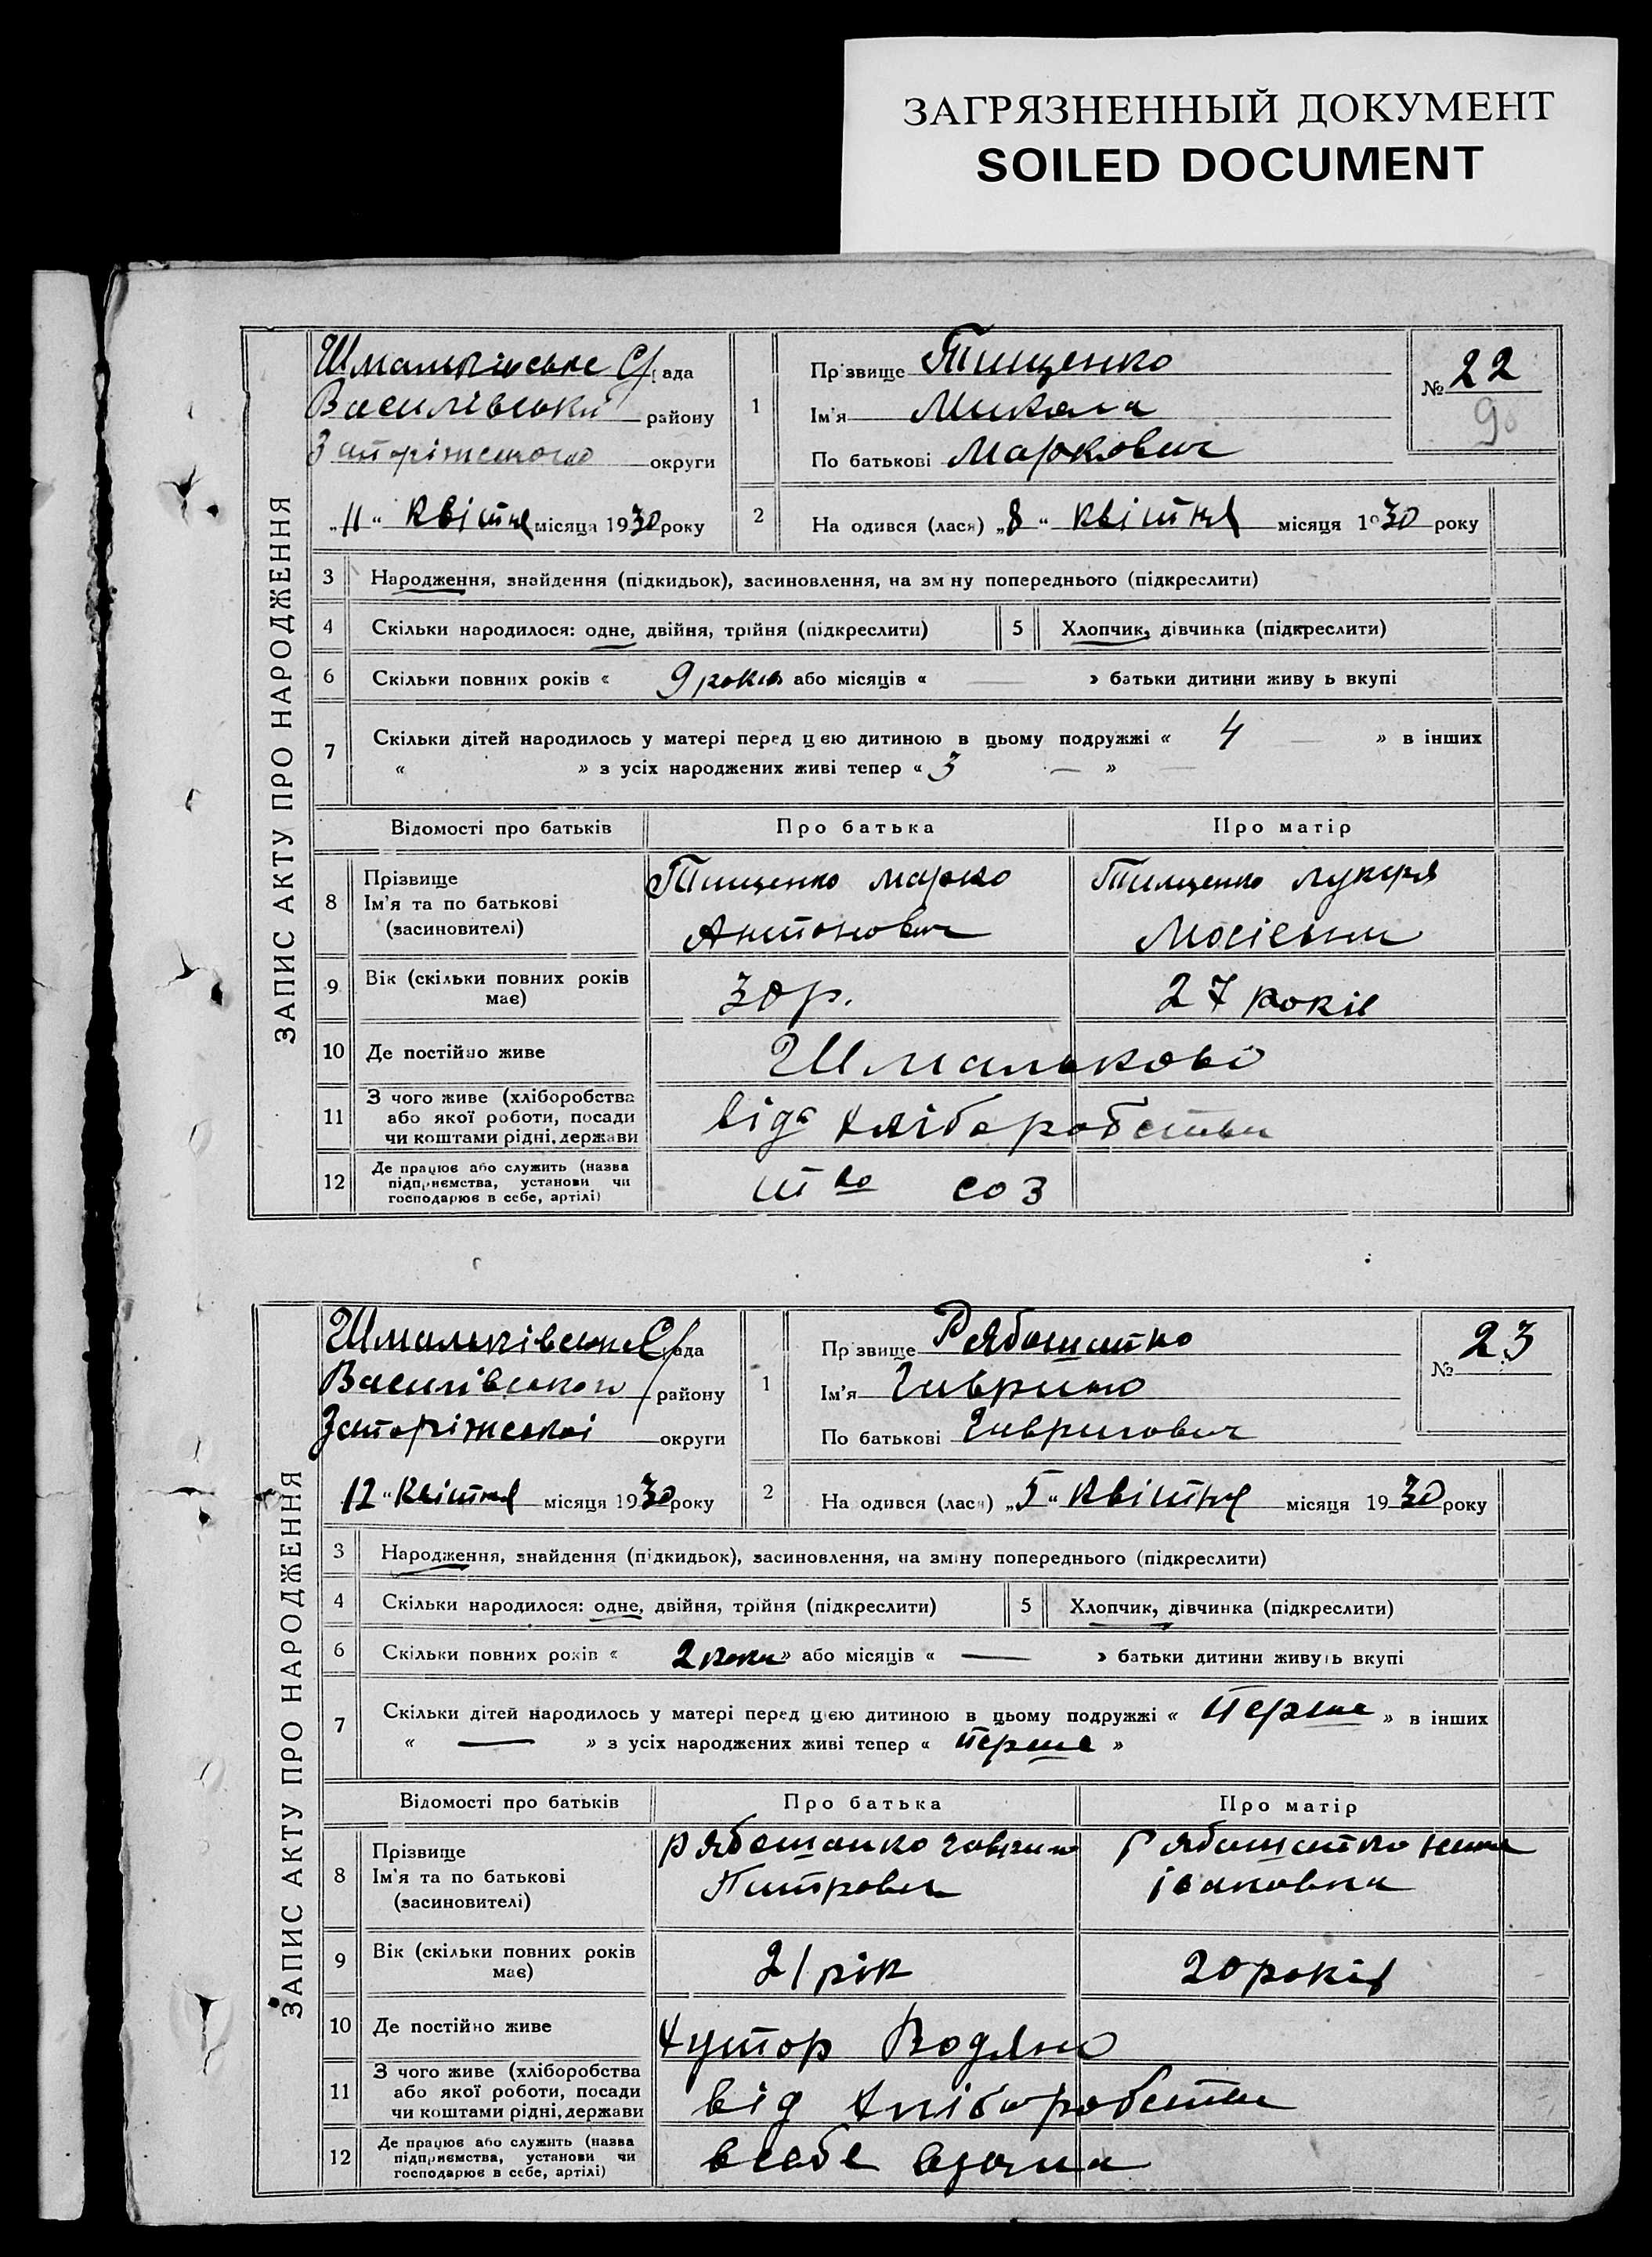 ЗАГРЯЗНЕННЫЙ ДОКУМЕНТ
SOILED DOCUMENT
ЗАПИС АКТУ ПРО НАРОДЖЕННЯ
Шмальківське С/рада
Василівський району
Запоріжського округи
„11“ Квітня місяця 1930 року
1
Прізвище Тищенко
Ім'я Микола
По батькові Маркович
№ 22
90
2
На одився (лася) „8“ Квітня місяця 1930 року
3 Народження, знайдення (підкидьок), засиновлення, на зм ну попереднього (підкреслити)
4 Скільки народилося: одне, двійня, трійня (підкреслити) 5 Хлопчик, дівчинка (підкреслити)
6 Скільки повних років « 9 років або місяців « — » батьки дитини живу ь вкупі
7 Скільки дітей народилось у матері перед цією дитиною в цьому подружжі « 4 — » в інших
« » з усіх народжених живі тепер « 3 — » —
Відомості про батьків Про батька Про матір
8 Прізвище
Ім'я та по батькові
(засиновителі)
Тищенко Марко
Антонович
Тищенко Лукиря
Мосієвни
9 Вік (скільки повних років має) 30 р. 27 років
10 Де постійно живе Шмальково
11 З чого живе (хліборобства
або якої роботи, посади
чи коштами рідні, держави
від хліборобства
12 Де працює або служить (назва
підприємства, установи чи
господарює в себе, артілі)
тво соз
ЗАПИС АКТУ ПРО НАРОДЖЕННЯ
Шмальківська С/рада
Василівського району
Запоріжської округи
12 “ Квітня місяця 1930 року
1
Пр звище Рябошапко
Ім'я Гаврило
По батькові Гаврилович
№ 23
2
На одився (лася) „5“ Квітня місяця 1930 року
3 Народження, знайдення (підкидьок), засиновлення, на зміну попереднього (підкреслити)
4 Скільки народилося: одне, двійня, трійня (підкреслити) 5 Хлопчик, дівчинка (підкреслити)
6 Скільки повних років « 2 роки » або місяців « — » батьки дитини живуть вкупі
7 Скільки дітей народилось у матері перед цією дитиною в цьому подружжі « Перше » в інших
« — » з усіх народжених живі тепер « перше »
Відомості про батьків Про батька Про матір
8 Прізвище
Ім'я та по батькові
(засиновителі)
Рябошапко Гаврило
Питрович
Рябошапко
Івановна
9 Вік (скільки повних років має) 21 рік 20 років
10 Де постійно живе Хутор Водяно
11 З чого живе (хліборобства
або якої роботи, посади
чи коштами рідні, держави
від хліборобства
12 Де працює або служить (назва
підприємства, установи чи
господарює в себе, артілі)
всебе вдома